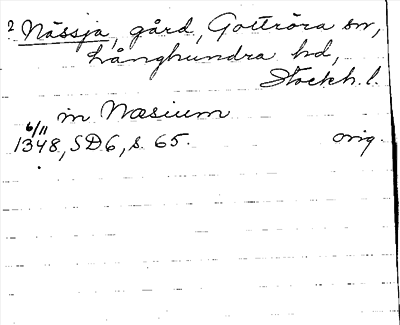 2 Nässja, gård, Gottröra sn,
Långhundra hd,
Stockh. l.
in Næsium
6/11
1348, SD 6, s. 65. orig.